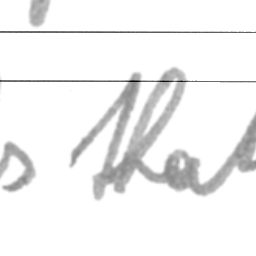 s that